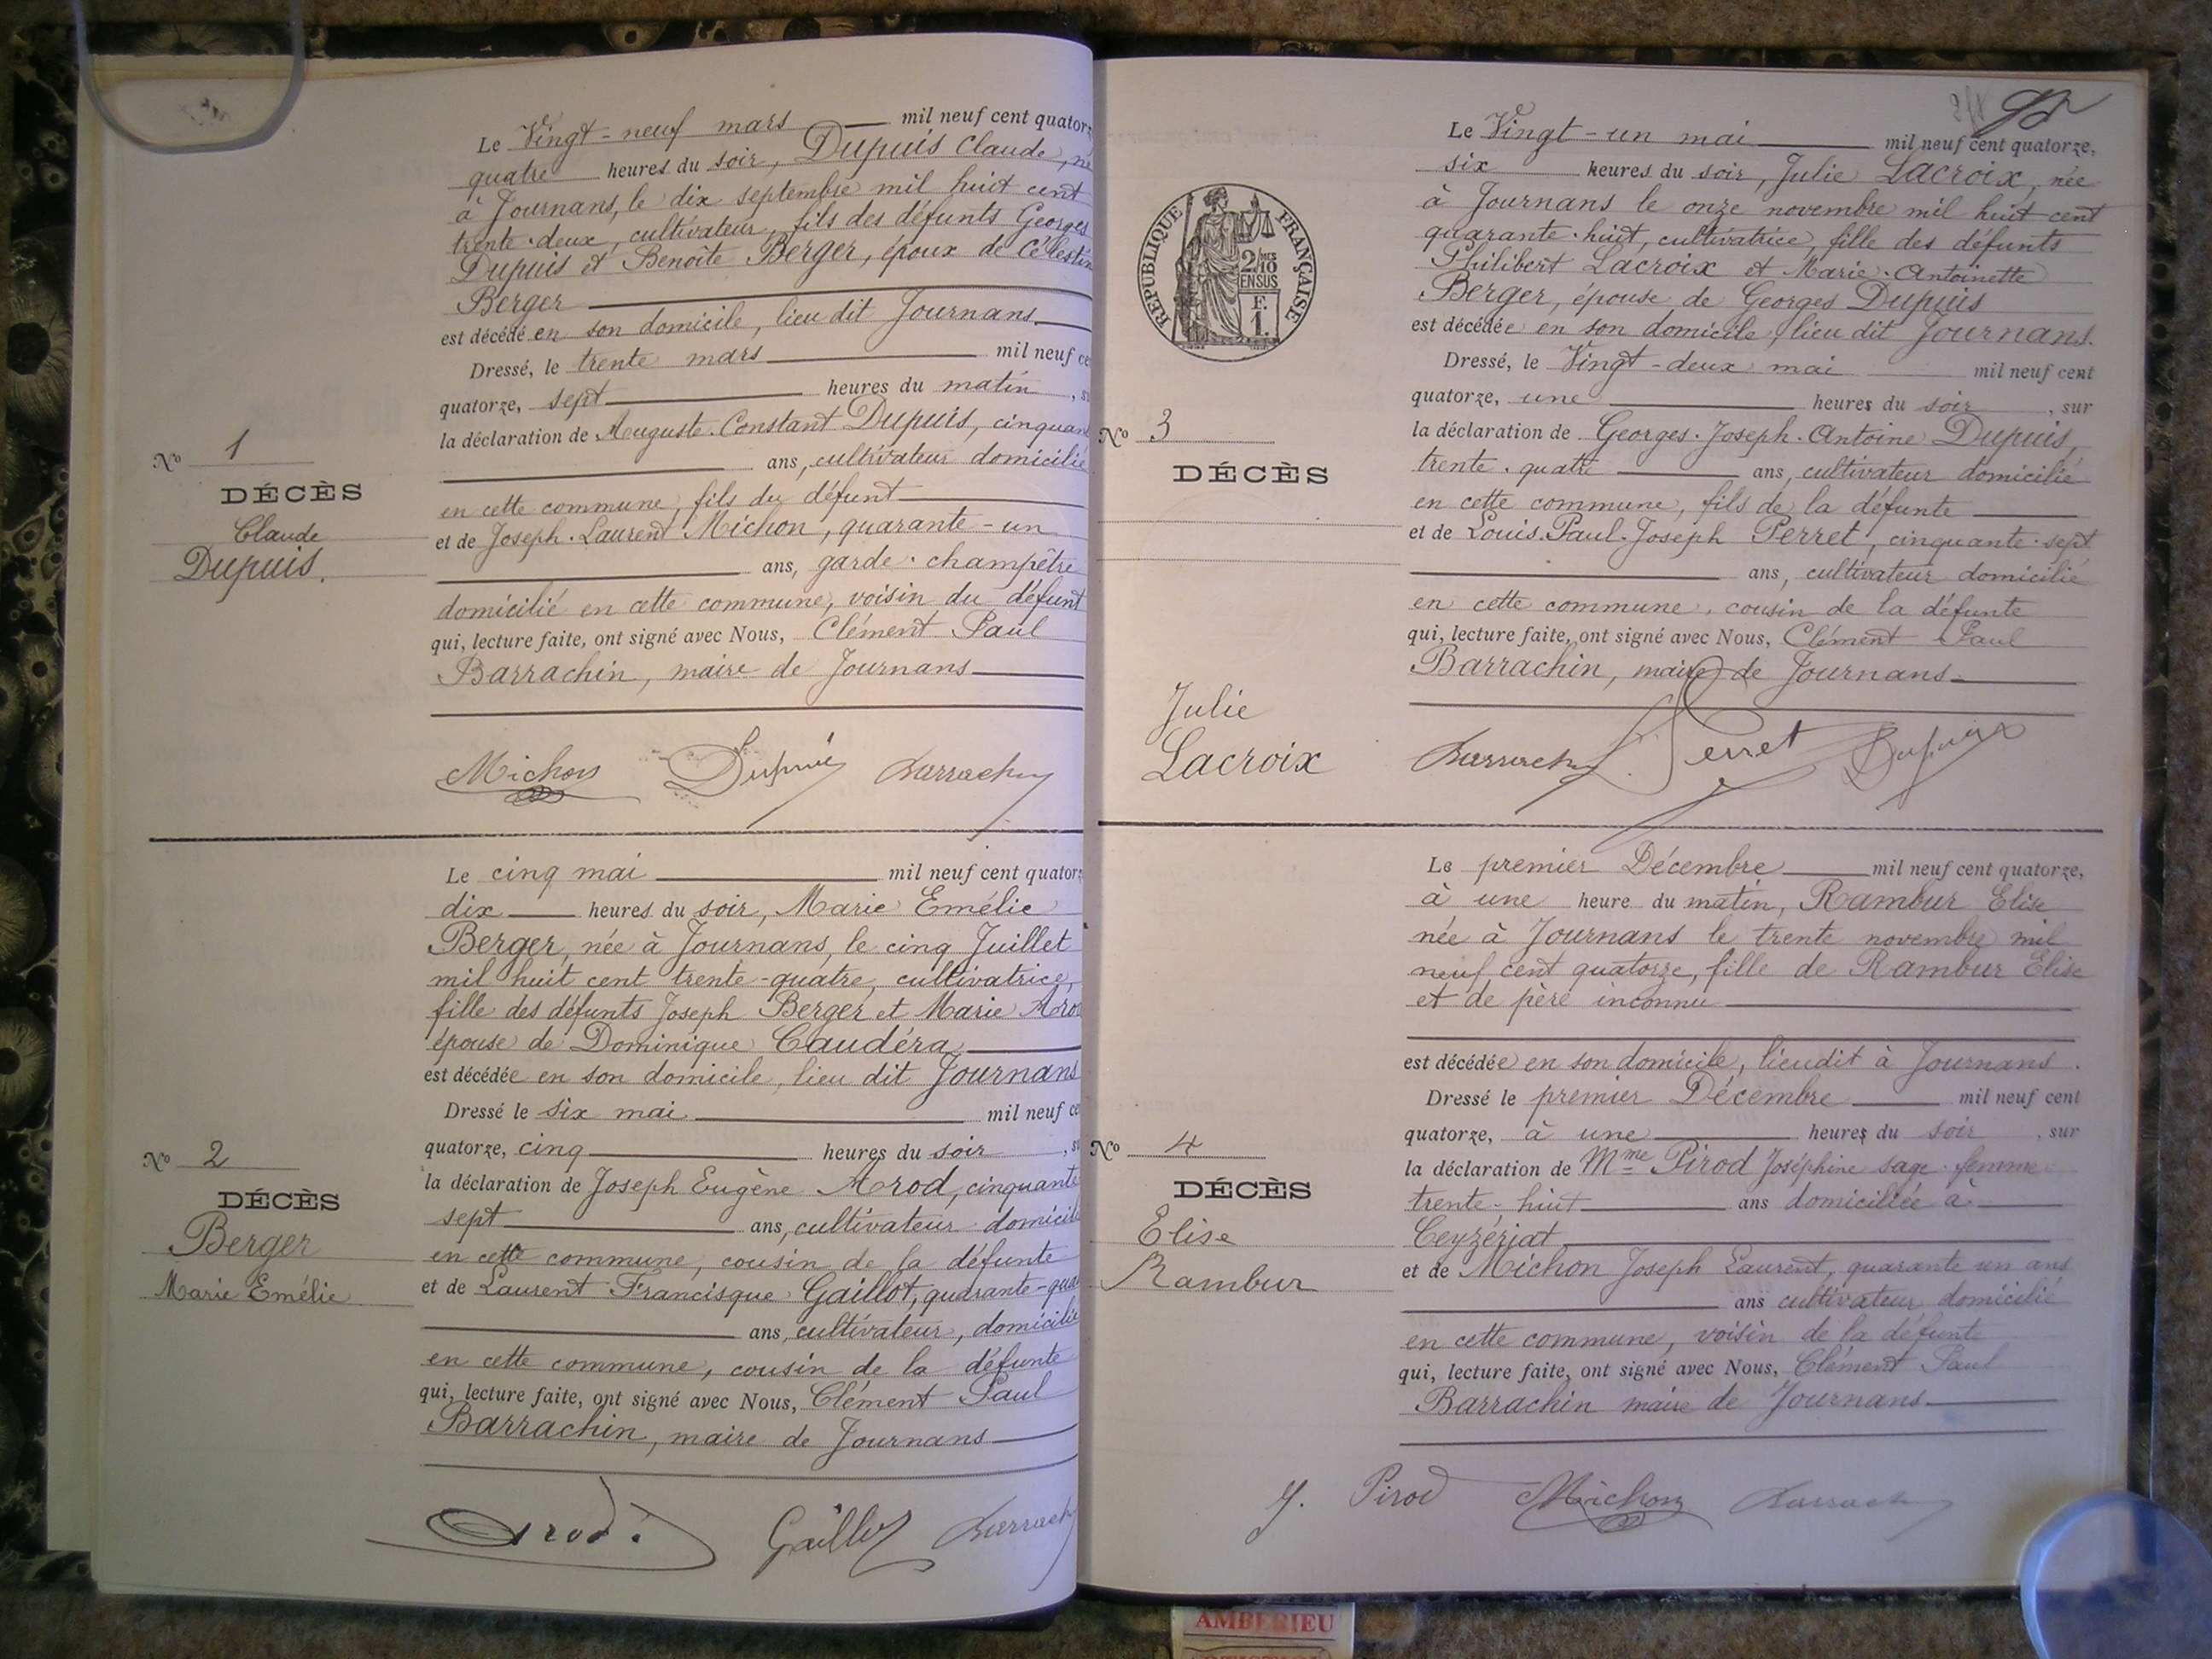 Le Vingt-neuf mars mil neuf cent quatorz
quatre heures du soir, Dupuis Claude, né
à Journans, le dix septembre mil huit cent
trente-deux, cultivateur, fils des défunts Georges
Dupuis et Benoîte Berger, époux de Célestin
Berger
est décédé en son domicile, lieu dit Journans
Dressé, le trente mars mil neuf ce
quatorze, sept heures du matin, s
la déclaration de Auguste-Constant Dupuis, cinquan
ans, cultivateur domicilié
en cette commune, fils du défunt
et de Joseph-Laurent Michon, quarante-un
ans, garde-champêtre
domicilié en cette commune, voisin du défunt
qui, lecture faite, ont signé avec Nous, Clément Paul
Barrachin, maire de Journans
Nº 1
DÉCÈS
Claude
Dupuis.
Michon Dupuis Barrachin
Le cinq mai mil neuf cent quatorz
dix heures du soir, Marie Emélie
Berger, née à Journans, le cinq Juillet
mil huit cent trente-quatre, cultivatrice,
fille des défunts Joseph Berger et Marie Arod
épouse de Dominique Caudéra
est décédée en son domicile, lieu dit Journans
Dressé le six mai mil neuf ce
quatorze, cinq heures du soir, s
la déclaration de Joseph Eugène Arod, cinquante
sept ans, cultivateur domicilié
en cette commune, cousin de la défunte
et de Laurent Francisque Gaillot, quarante-qua
ans, cultivateur, domicilié
en cette commune, cousin de la défunte
qui, lecture faite, ont signé avec Nous, Clément Paul
Barrachin, maire de Journans
Nº 2
DÉCÈS
Berger
Marie Emélie
Arod Gaillot Barrachin
RÉPUBLIQUE FRANÇAISE
2/10 MES
EN SUS
F.
1.
Le Vingt-un mai mil neuf cent quatorze,
six heures du soir, Julie Lacroix, née
à Journans le onze novembre mil huit cent
quarante-huit, cultivatrice, fille des défunts
Philibert Lacroix et Marie-Antoinette
Berger, épouse de Georges Dupuis
est décédée en son domicile, lieu dit Journans.
Dressé, le Vingt-deux mai mil neuf cent
quatorze, une heures du soir, sur
la déclaration de Georges-Joseph-Antoine Dupuis,
trente-quatre ans, cultivateur domicilié
en cette commune, fils de la défunte
et de Louis-Paul-Joseph Perret, cinquante-sept
ans, cultivateur domicilié
en cette commune, cousin de la défunte
qui, lecture faite, ont signé avec Nous, Clément Paul
Barrachin, maire de Journans
Nº 3
DÉCÈS
Julie
Lacroix
Barrachin Perret Dupuis
Le premier Décembre mil neuf cent quatorze,
à une heure du matin, Rambur Elise
née à Journans le trente novembre mil
neuf cent quatorze, fille de Rambur Elise
et de père inconnu
est décédée en son domicile, lieu dit à Journans.
Dressé le premier Décembre mil neuf cent
quatorze, à une heures du soir, sur
la déclaration de Mme Pirod Joséphine sage-femme
trente-huit ans domiciliée à
Ceyzériat
et de Michon Joseph Laurent, quarante un ans
ans cultivateur domicilié
en cette commune, voisin de la défunte
qui, lecture faite, ont signé avec Nous, Clément Paul
Barrachin maire de Journans
Nº 4
DÉCÈS
Elise
Rambur
J. Pirod Michon Barrachin
AMBERIEU